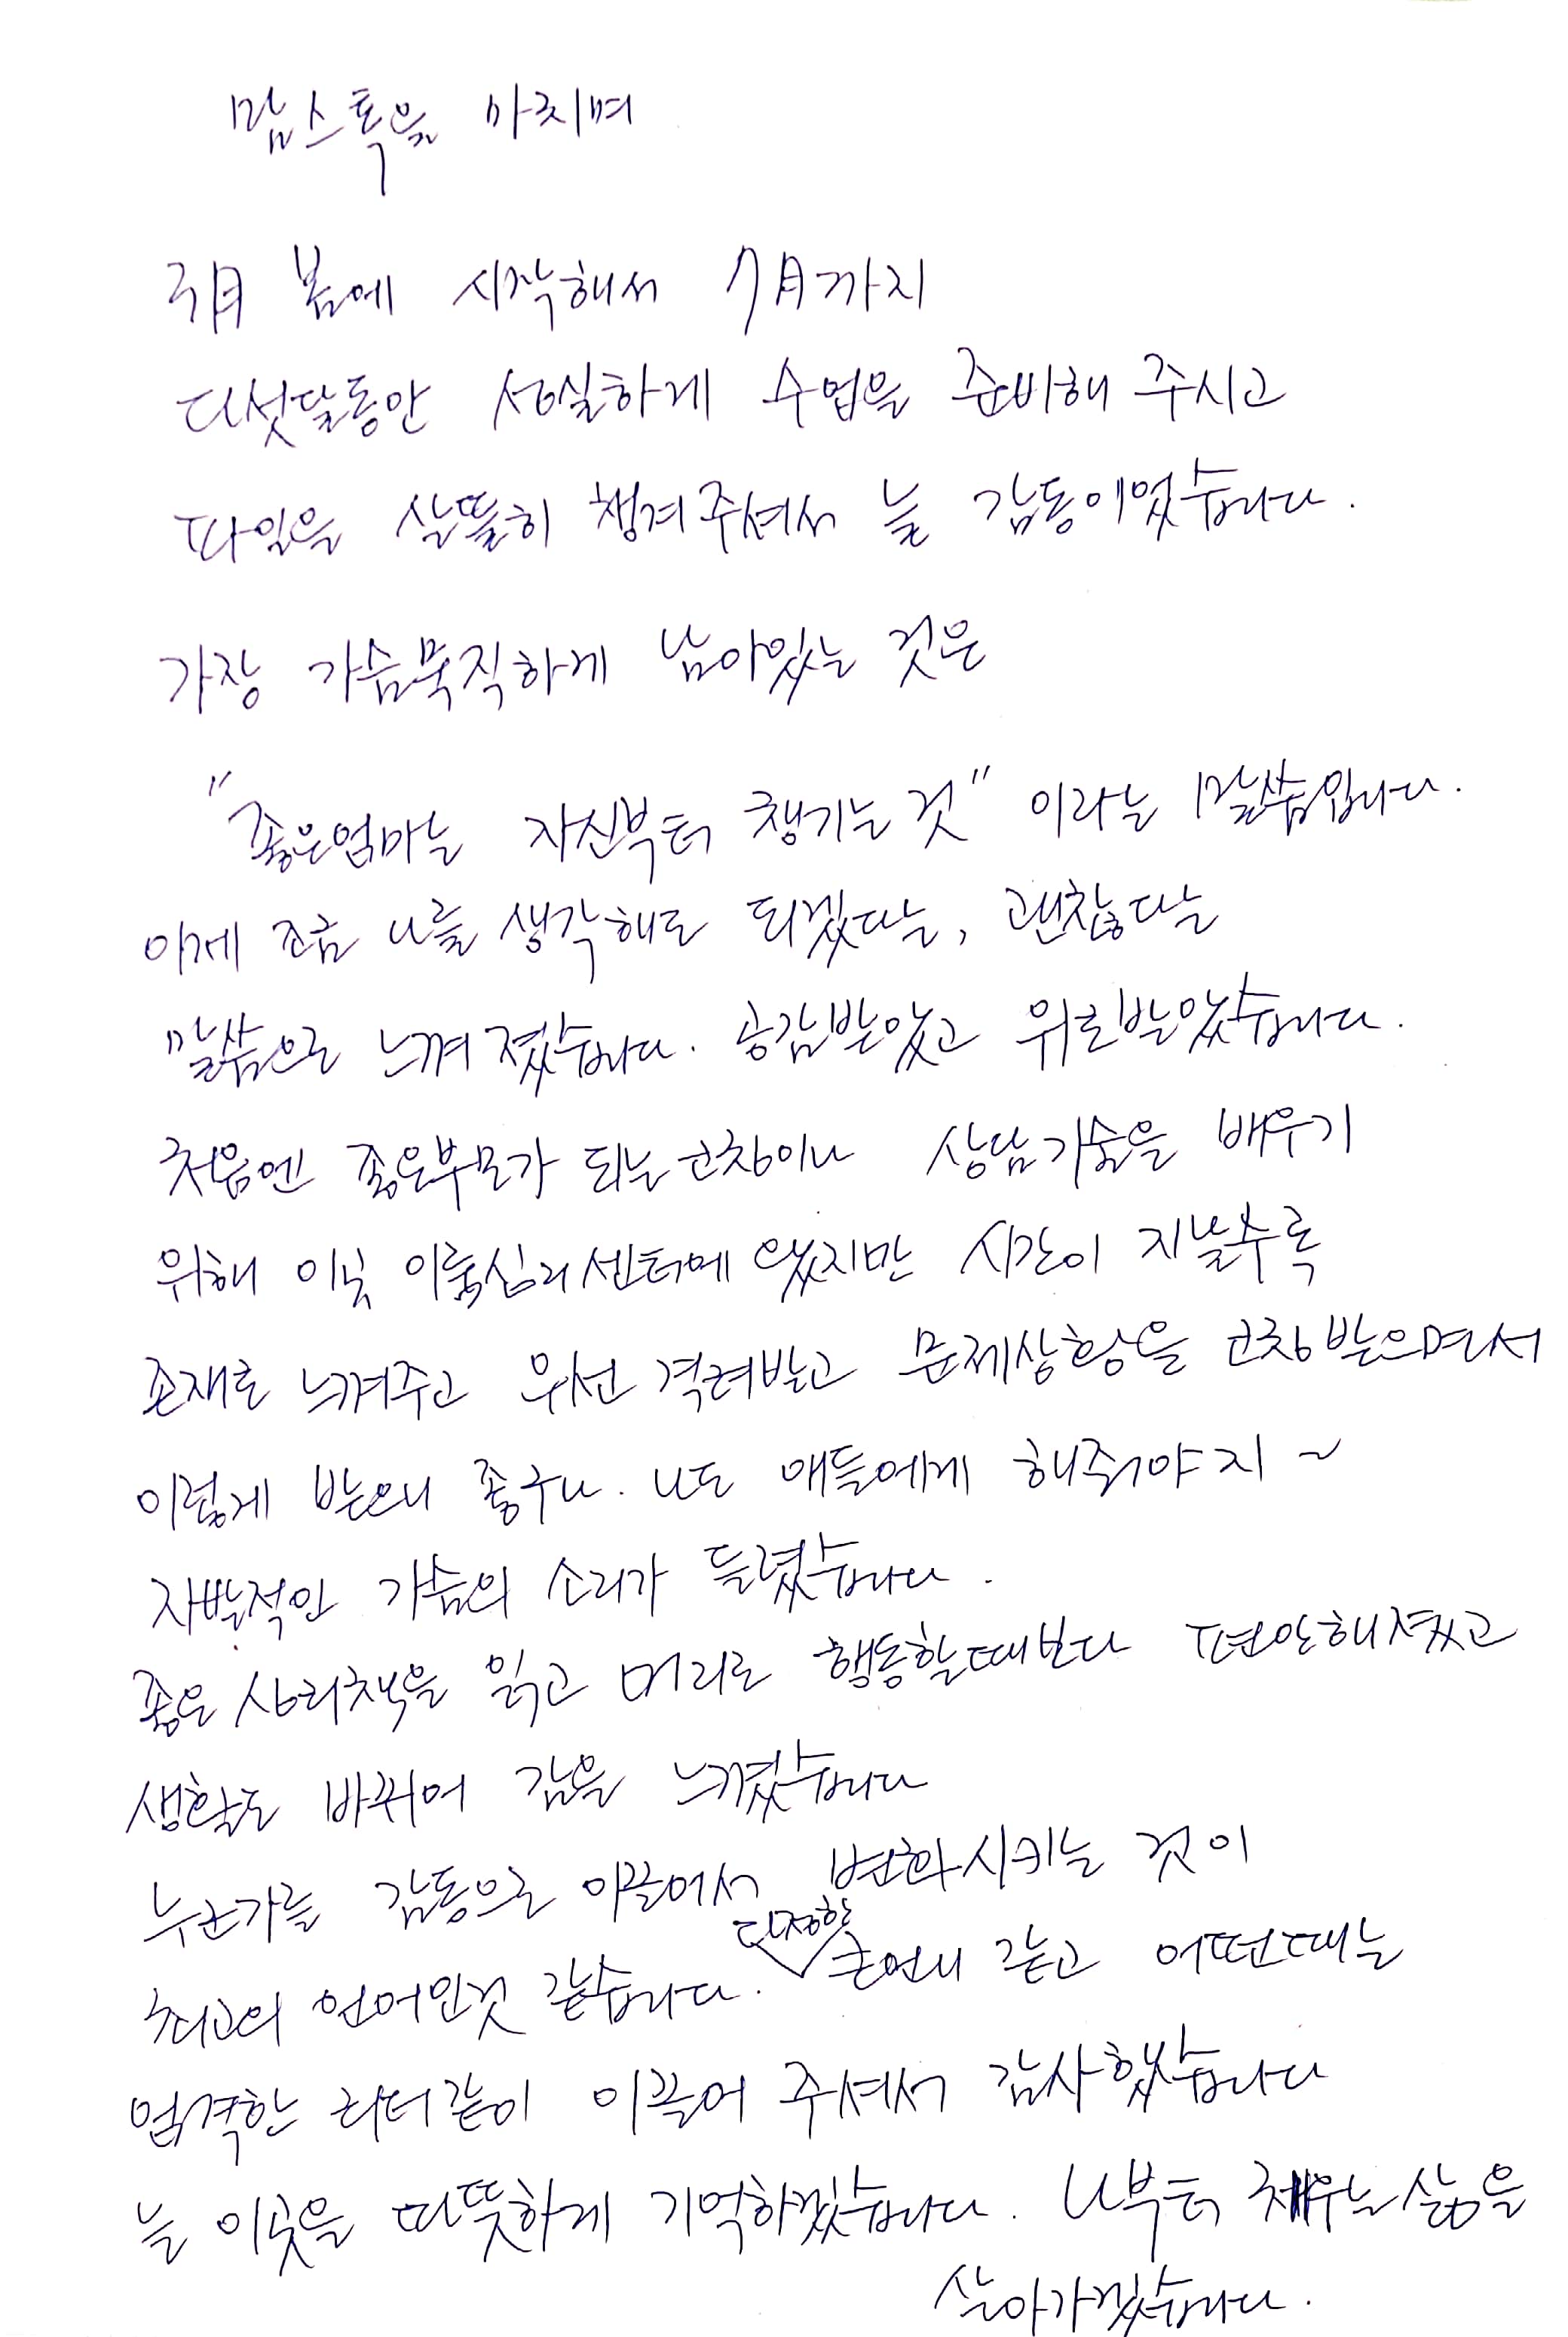 맘스톡을 마치며
3月 봄에 시작해서 7月까지
다섯달동안 성실하게 수업을 준비해 주시고
파일을 살뜰히 챙겨주셔서 늘 감동이었습니다.
가장 가슴묵직하게 남아있는 것은
"좋은엄마는 자신부터 챙기는 것" 이라는 말씀입니다.
이제 조금 나를 생각해도 되겠다는, 괜찮다는
말씀으로 느껴졌습니다. 공감받았고 위로받았습니다.
처음엔 좋은부모가 되는 코칭이나 상담기술을 배우기
위해 이곳 이룸심리센터에 왔지만 시간이 지날수록
존재로 느껴주고 우선 격려받고 문제상황을 코칭 받으면서
이렇게 받으니 좋구나. 나도 애들에게 해줘야지~
자발적인 가슴의 소리가 들렸습니다.
좋은 심리책을 읽고 머리로 행동할때보다 편안해졌고
생활도 바뀌어 감을 느꼈습니다
누군가를 감동으로 이끌어서 변화시키는 것이
최고의 언어인것 같습니다. 다정한 큰언니 같고 어떤때는
엄격한 리더같이 이끌어 주셔서 감사했습니다
늘 이곳을 따뜻하게 기억하겠습니다. 나부터 채우는 삶을
살아가겠습니다.